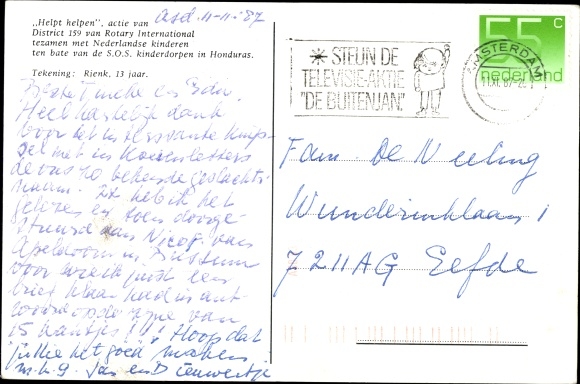 „Helpt helpen", actie van
District 159 van Rotary International
tezamen met Nederlandse kinderen
en bate van de S.O.S. kinderdorpen in Honduras.
Tekening: Rienk, 13 jaar.
asd. 11-11-'87
Beste Tineke en
Heel hartelijk dank
voor het interessante knip-
sel met in Koeienletters
de ons zo bekende geslachts-
naam. Ik heb ik het
gelezen en toen doorge-
stuurd aan Nico J. van
Apeldoorn in Bussum
voor wie ik juist een
brief klaar had in ant-
woord op
15 kantjes!!! Hoop dat
jullie het goed maken
m.h.g. Jan en Dieuwertje
* STEUN DE
TELEVISIE-AKTIE
"DE BUITENJAN"
AMSTERDAM
11.XI.87
55 c
nederland
Fam De Neeling
Wunderinklaan 1
7211AG Eefde